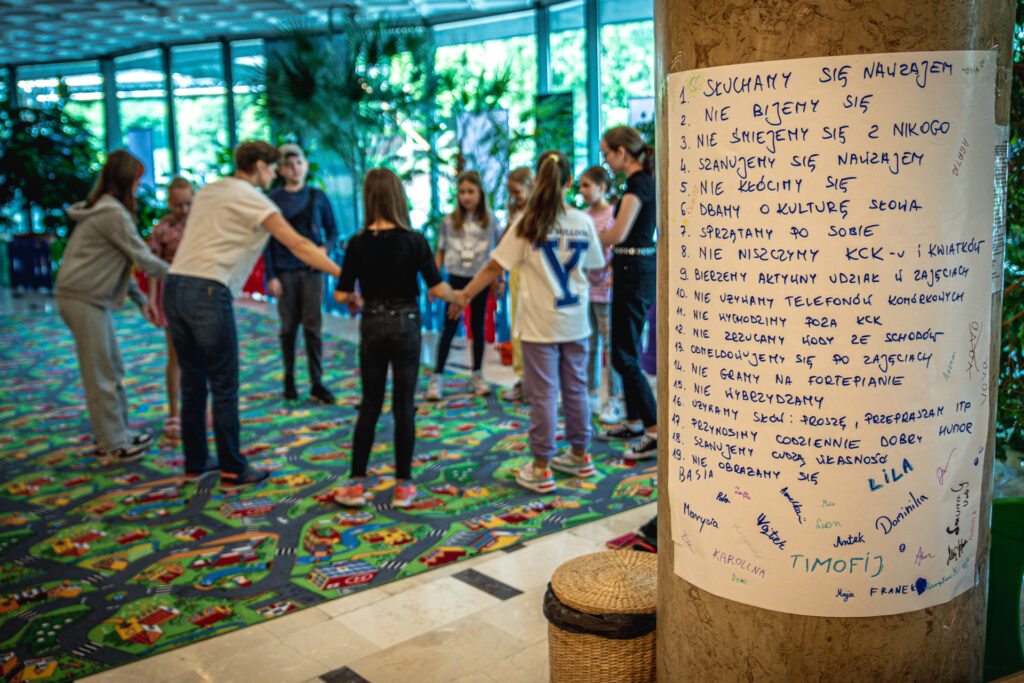 1. SŁUCHAMY SIĘ NAWZAJEM
2. NIE BIJEMY SIĘ
3. NIE ŚMIEJEMY SIĘ Z NIKOGO
4. SZANUJEMY SIĘ NAWZAJEM
5. NIE KŁÓCIMY SIĘ
6. DBAMY O KULTURĘ SŁOWA
7. SPRZĄTAMY PO SOBIE
8. NIE NISZCZYMY KCK-u I KWIATKÓW
9. BIERZEMY AKTYWNY UDZIAŁ W ZAJĘCIACH
10. NIE UŻYWAMY TELEFONÓW KOMÓRKOWYCH
11. NIE WYCHODZIMY POZA KCK
12. NIE ZRZUCAMY WODY ZE SCHODÓW
13. ODMELDOWUJEMY SIĘ PO ZAJĘCIACH
14. NIE GRAMY NA FORTEPIANIE
15. NIE WYBRZYDZAMY
16. UŻYWAMY SŁÓW: PROSZĘ, PRZEPRASZAM ITP
17. PRZYNOSIMY CODZIENNIE DOBRY HUMOR
18. SZANUJEMY CUDZĄ WŁASNOŚĆ
19. NIE OBRAZAMY SIĘ
BASIA
LILA
Marysia
Wojtek
Antek
Dominika
KAROLINA
TIMOFIJ
Maja
FRANEK
Y